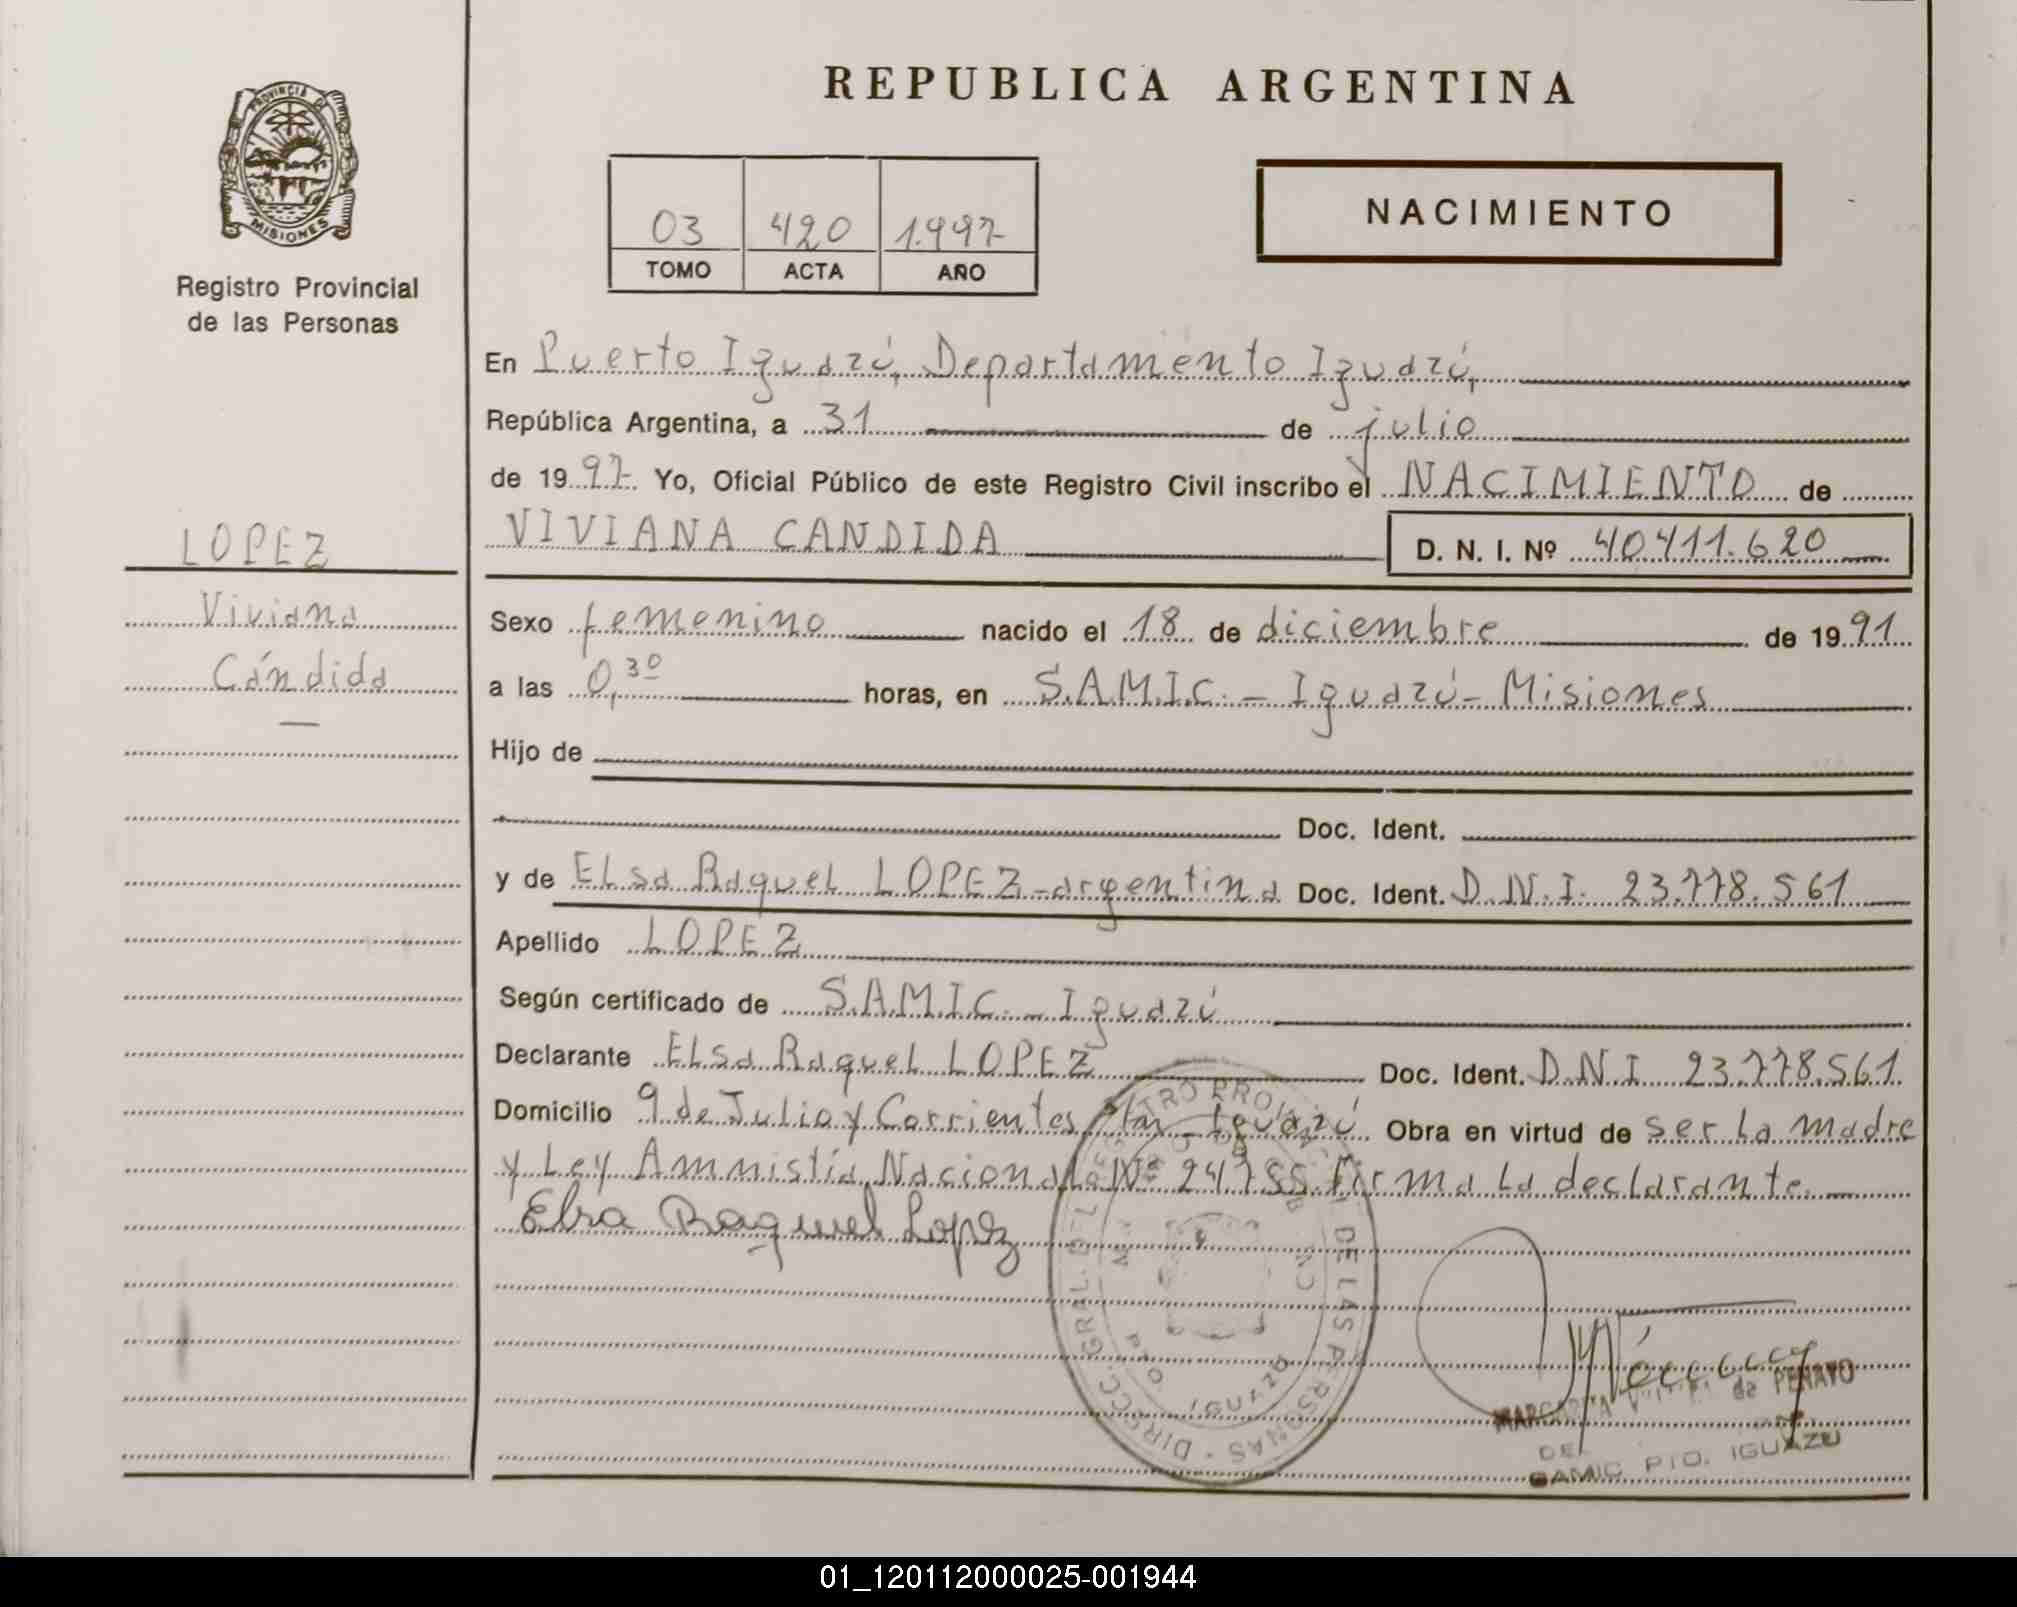 PROVINCIA DE
MISIONES
Registro Provincial
de las Personas
LOPEZ
Viviana
Cándida
REPUBLICA ARGENTINA
03 420 1.997
TOMO ACTA AÑO
NACIMIENTO
En Puerto Iguazú, Departamento Iguazú,
República Argentina, a 31 de julio
de 1997 Yo, Oficial Público de este Registro Civil inscribo el NACIMIENTO de
VIVIANA CANDIDA D. N. I. Nº 40411.620
Sexo femenino nacido el 18 de diciembre de 1991
a las 0,30 horas, en S.A.M.I.C. - Iguazú - Misiones
Hijo de
Doc. Ident.
y de Elsa Raquel LOPEZ - argentina Doc. Ident. D.N.I. 23.778.561
Apellido LOPEZ
Según certificado de S.A.M.I.C. - Iguazú
Declarante Elsa Raquel LOPEZ Doc. Ident. D.N.I 23.778.561
Domicilio 9 de Julio y Corrientes Iguazú Obra en virtud de ser la madre
y Ley Amnistía Nacional Nº 24755. firma la declarante.
Elsa Raquel Lopez
DIRECC. GRAL. DEL REGISTRO PROVINCIAL DE LAS PERSONAS
PTO. IGUAZU
MARGARITA de PERAYO
SAMIC PTO. IGUAZU
01_120112000025-001944